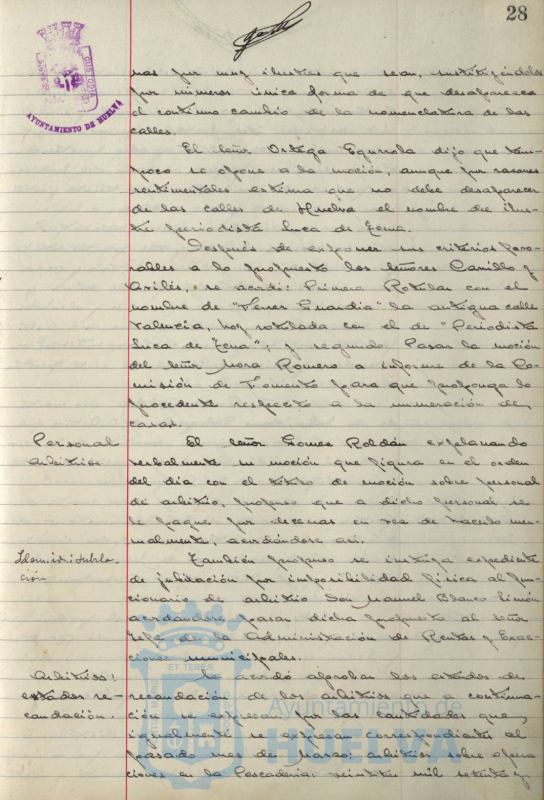 28
CUSTODIA
AYUNTAMIENTO DE HUELVA
nas por muy ilustres que sean, sustituyéndolas
por números única forma de que desaparezca
el continuo cambio de la nomenclatura de las
calles.
El señor Ortega Egurrola dijo que tam-
poco se opone a la moción, aunque por razones
sentimentales estima que no debe desaparecer
de las calles de Huelva el nombre del ilus-
tre periodista Luca de Tena.
Después de exponer sus criterios favo-
rables a lo propuesto los señores Carrillo y
Avilés, se acordó: Primero Rotular con el
nombre de "Ferrer Guardia" la antigua calle
Valencia, hoy rotulada con el de "Periodista
Luca de Tena"; y segundo. Pasar la moción
del señor Mora Romero a informe de la Co-
misión de Fomento para que proponga lo
procedente respecto a la numeración de
casas.
Personal
Arbitrios
El señor Gomez Roldán explanando
verbalmente su moción que figura en el orden
del día con el título de moción sobre personal
de arbitrio, propuso que a dicho personal se
le pague por decenas en vez de hacerlo men-
sualmente, acordándose así.
Idem. id. jubila-
ción
También propuso se instruya expediente
de jubilación por imposibilidad física al fun-
cionario de arbitrio Don Manuel Blanco Limón
acordándose pasar dicha propuesta al señor
Jefe de la Administración de Rentas y Exac-
ciones municipales.
Arbitrios:
estados re-
caudación.
Se acordó aprobar los estados de
recaudación de los arbitrios que a continua-
ción se expresan por las cantidades que
igualmente se expresan correspondientes al
pasado mes de Marzo: arbitrios sobre opera
ciones en la Pescadería: veintitres mil setenta y
ET TERRAE
Ayuntamiento de
HUELVA